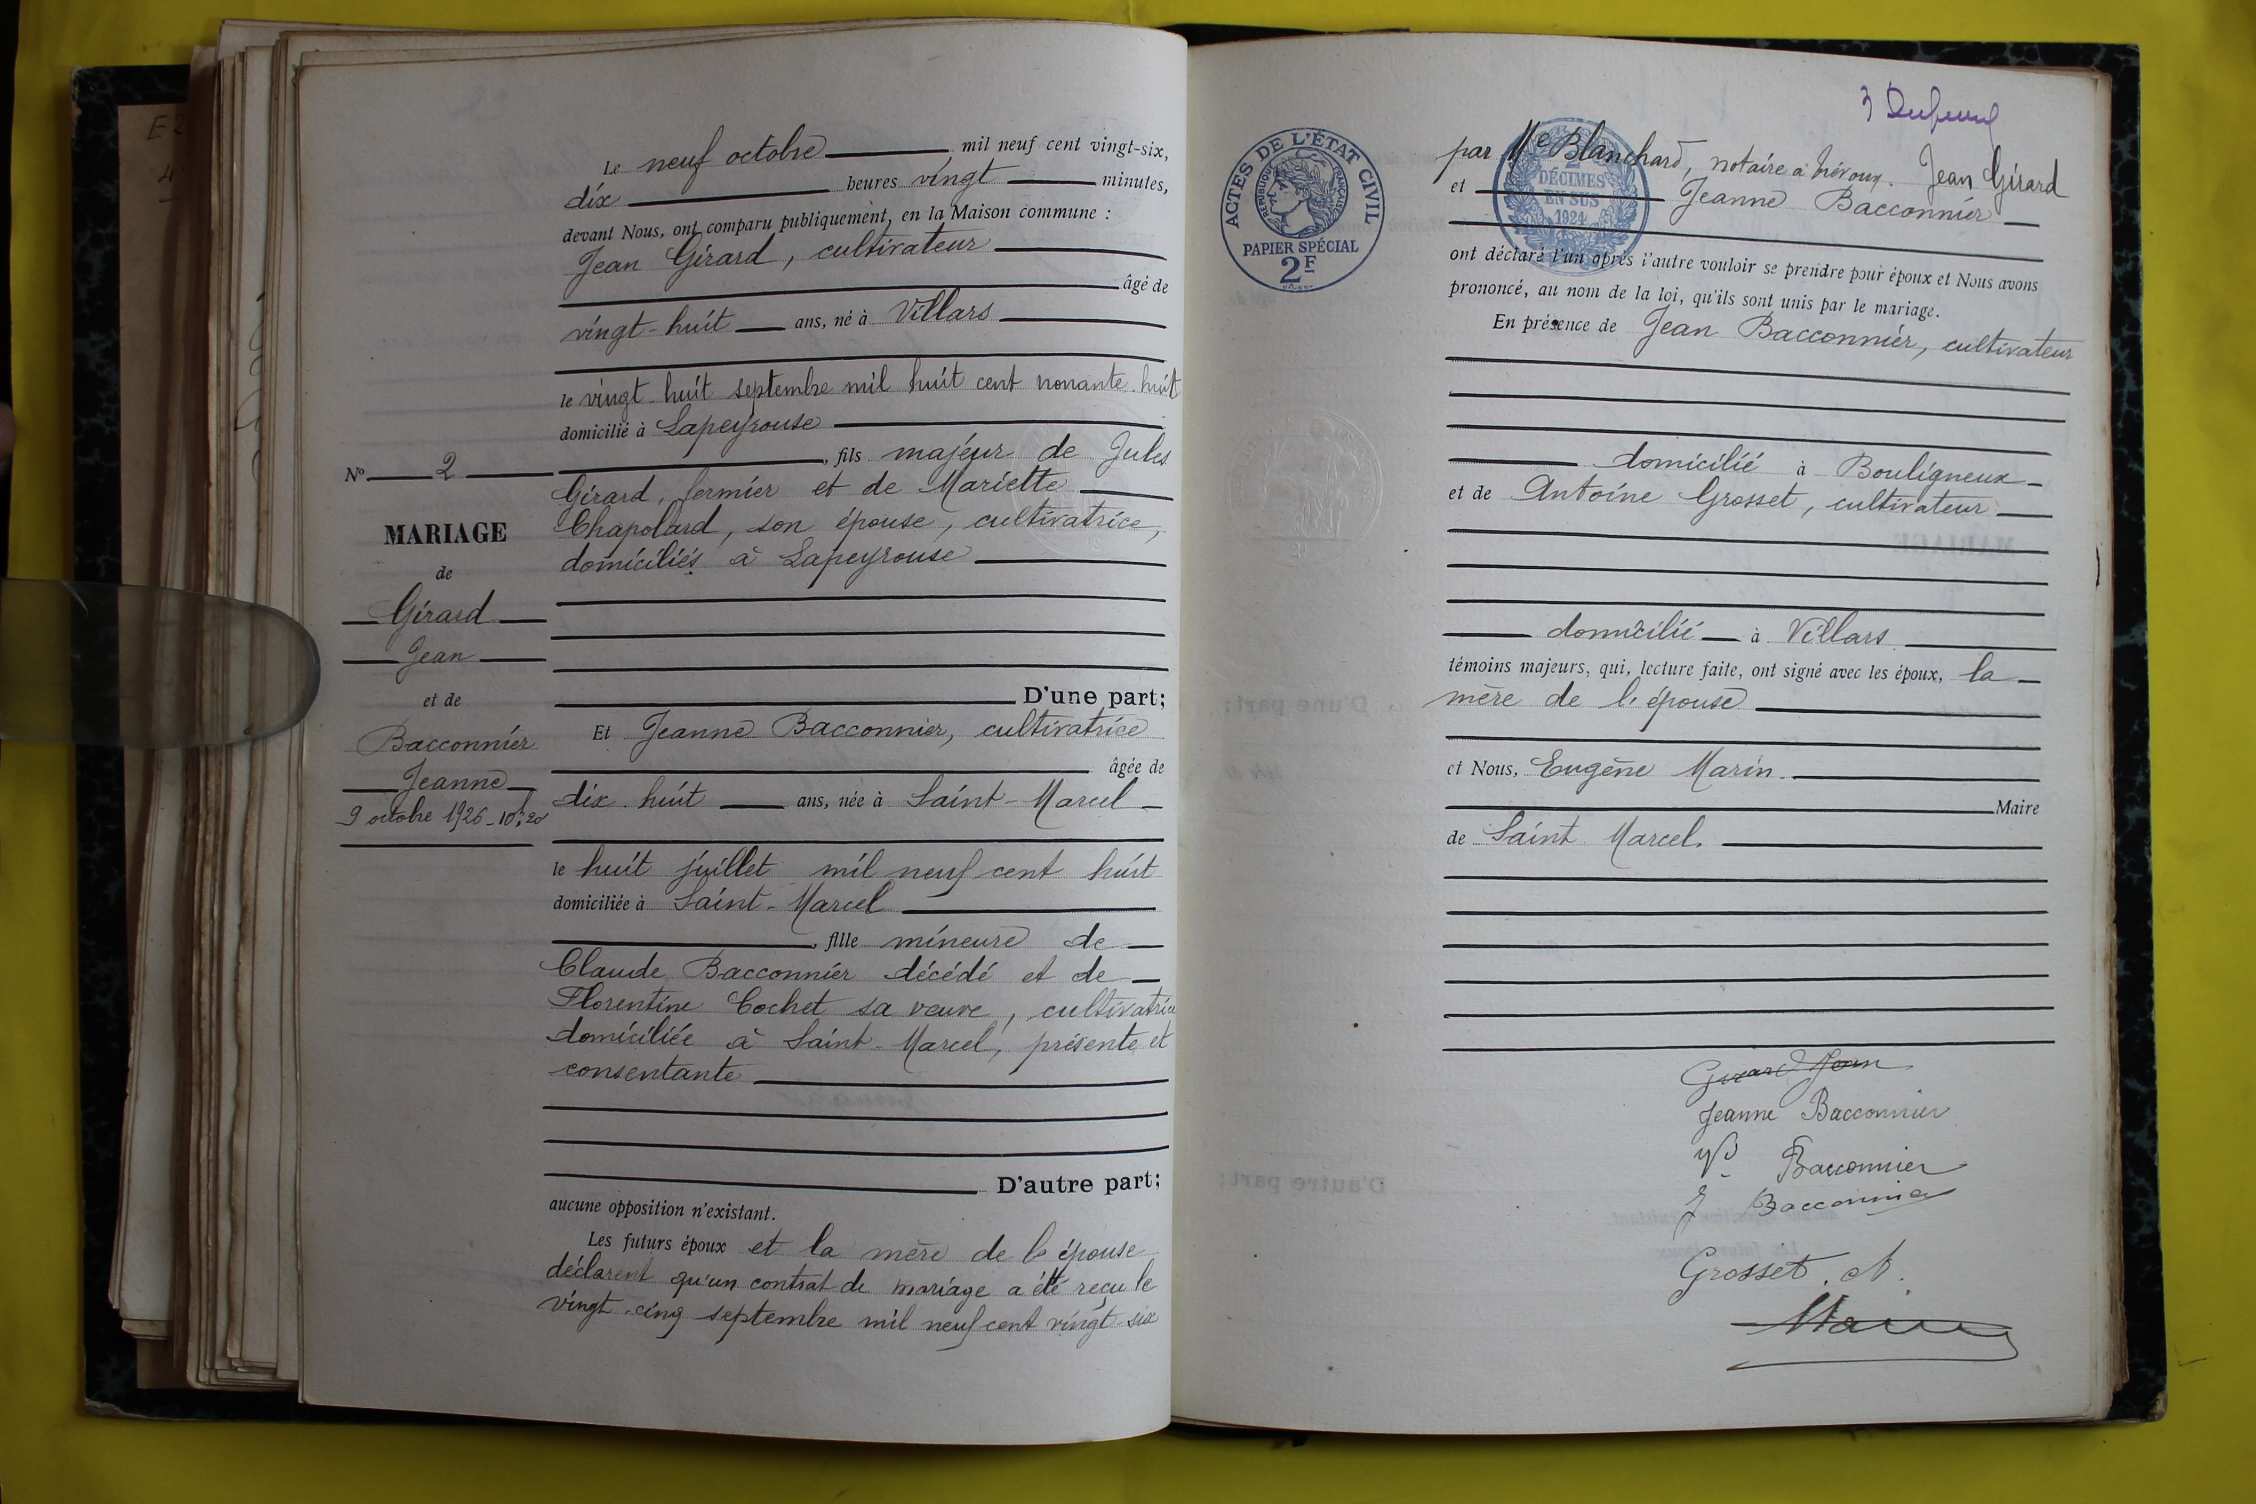 N° 2
MARIAGE
de
Girard
Jean
et de
Bacconnier
Jeanne
9 octobre 1926 - 10h 20
Le neuf octobre mil neuf cent vingt-six,
dix heures vingt minutes,
devant Nous, ont comparu publiquement, en la Maison commune :
Jean Girard, cultivateur
âgé de
vingt-huit ans, né à Villars
le vingt-huit septembre mil huit cent nonante-huit
domicilié à Lapeyrouse
, fils majeur de Jules
Girard, fermier et de Mariette
Chapolard, son épouse, cultivatrice,
domiciliés à Lapeyrouse
D'une part;
Et Jeanne Bacconnier, cultivatrice
âgée de
dix-huit ans, née à Saint-Marcel
le huit juillet mil neuf cent huit
domiciliée à Saint-Marcel
, fille mineure de
Claude Bacconnier décédé et de
Florentine Cochet sa veuve, cultivatrice
domiciliée à Saint-Marcel, présente et
consentante
D'autre part;
aucune opposition n'existant.
Les futurs époux et la mère de l'épouse
déclarent qu'un contrat de mariage a été reçu le
vingt-cinq septembre mil neuf cent vingt-six
ACTES DE L'ÉTAT CIVIL
RÉPUBLIQUE FRANÇAISE
PAPIER SPÉCIAL
2F
DÉCIMES
EN SUS
1924
par Me Blanchard, notaire à Trévoux. Jean Girard
et Jeanne Bacconnier
ont déclaré l'un après l'autre vouloir se prendre pour époux et Nous avons
prononcé, au nom de la loi, qu'ils sont unis par le mariage.
En présence de Jean Bacconnier, cultivateur
domicilié à Bouligneux
et de Antoine Grosset, cultivateur
domicilié à Villars
témoins majeurs, qui, lecture faite, ont signé avec les époux, la
mère de l'épouse
et Nous, Eugène Marin
Maire
de Saint Marcel.
Girard Jean
Jeanne Bacconnier
Ve Bacconnier
J Bacconnier
Grosset. A.
Marin